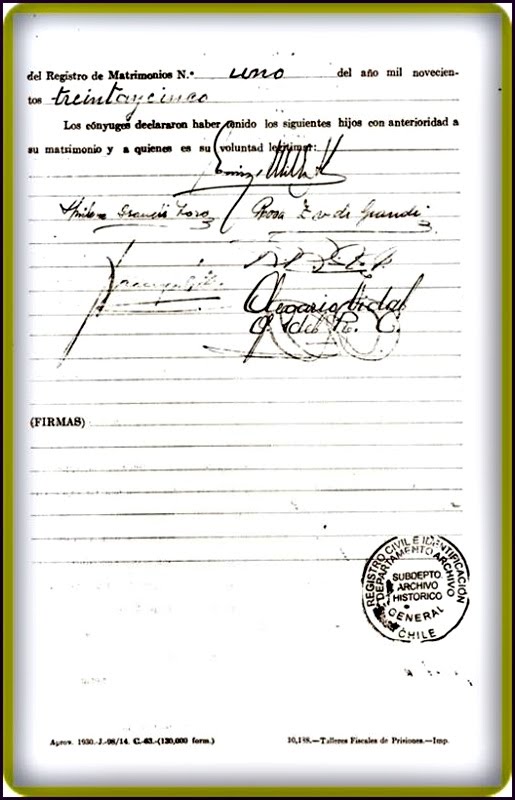 del Registro de Matrimonios N.º uno del año mil novecien-
tos treintaycinco
Los cónyuges declararon haber tenido los siguientes hijos con anterioridad a
su matrimonio y a quienes es su voluntad legitimar:
Rosa Z v de Grandi
Olegario Vidal
O. del R. C.
(FIRMAS)
REGISTRO CIVIL E IDENTIFICACIÓN
DEPARTAMENTO ARCHIVO
SUBDEPTO.
ARCHIVO
HISTORICO
GENERAL
CHILE
Aprov. 1930.-J.-98/14. C.-63.-(120,000 form.) 10,188.—Talleres Fiscales de Prisiones.—Imp.